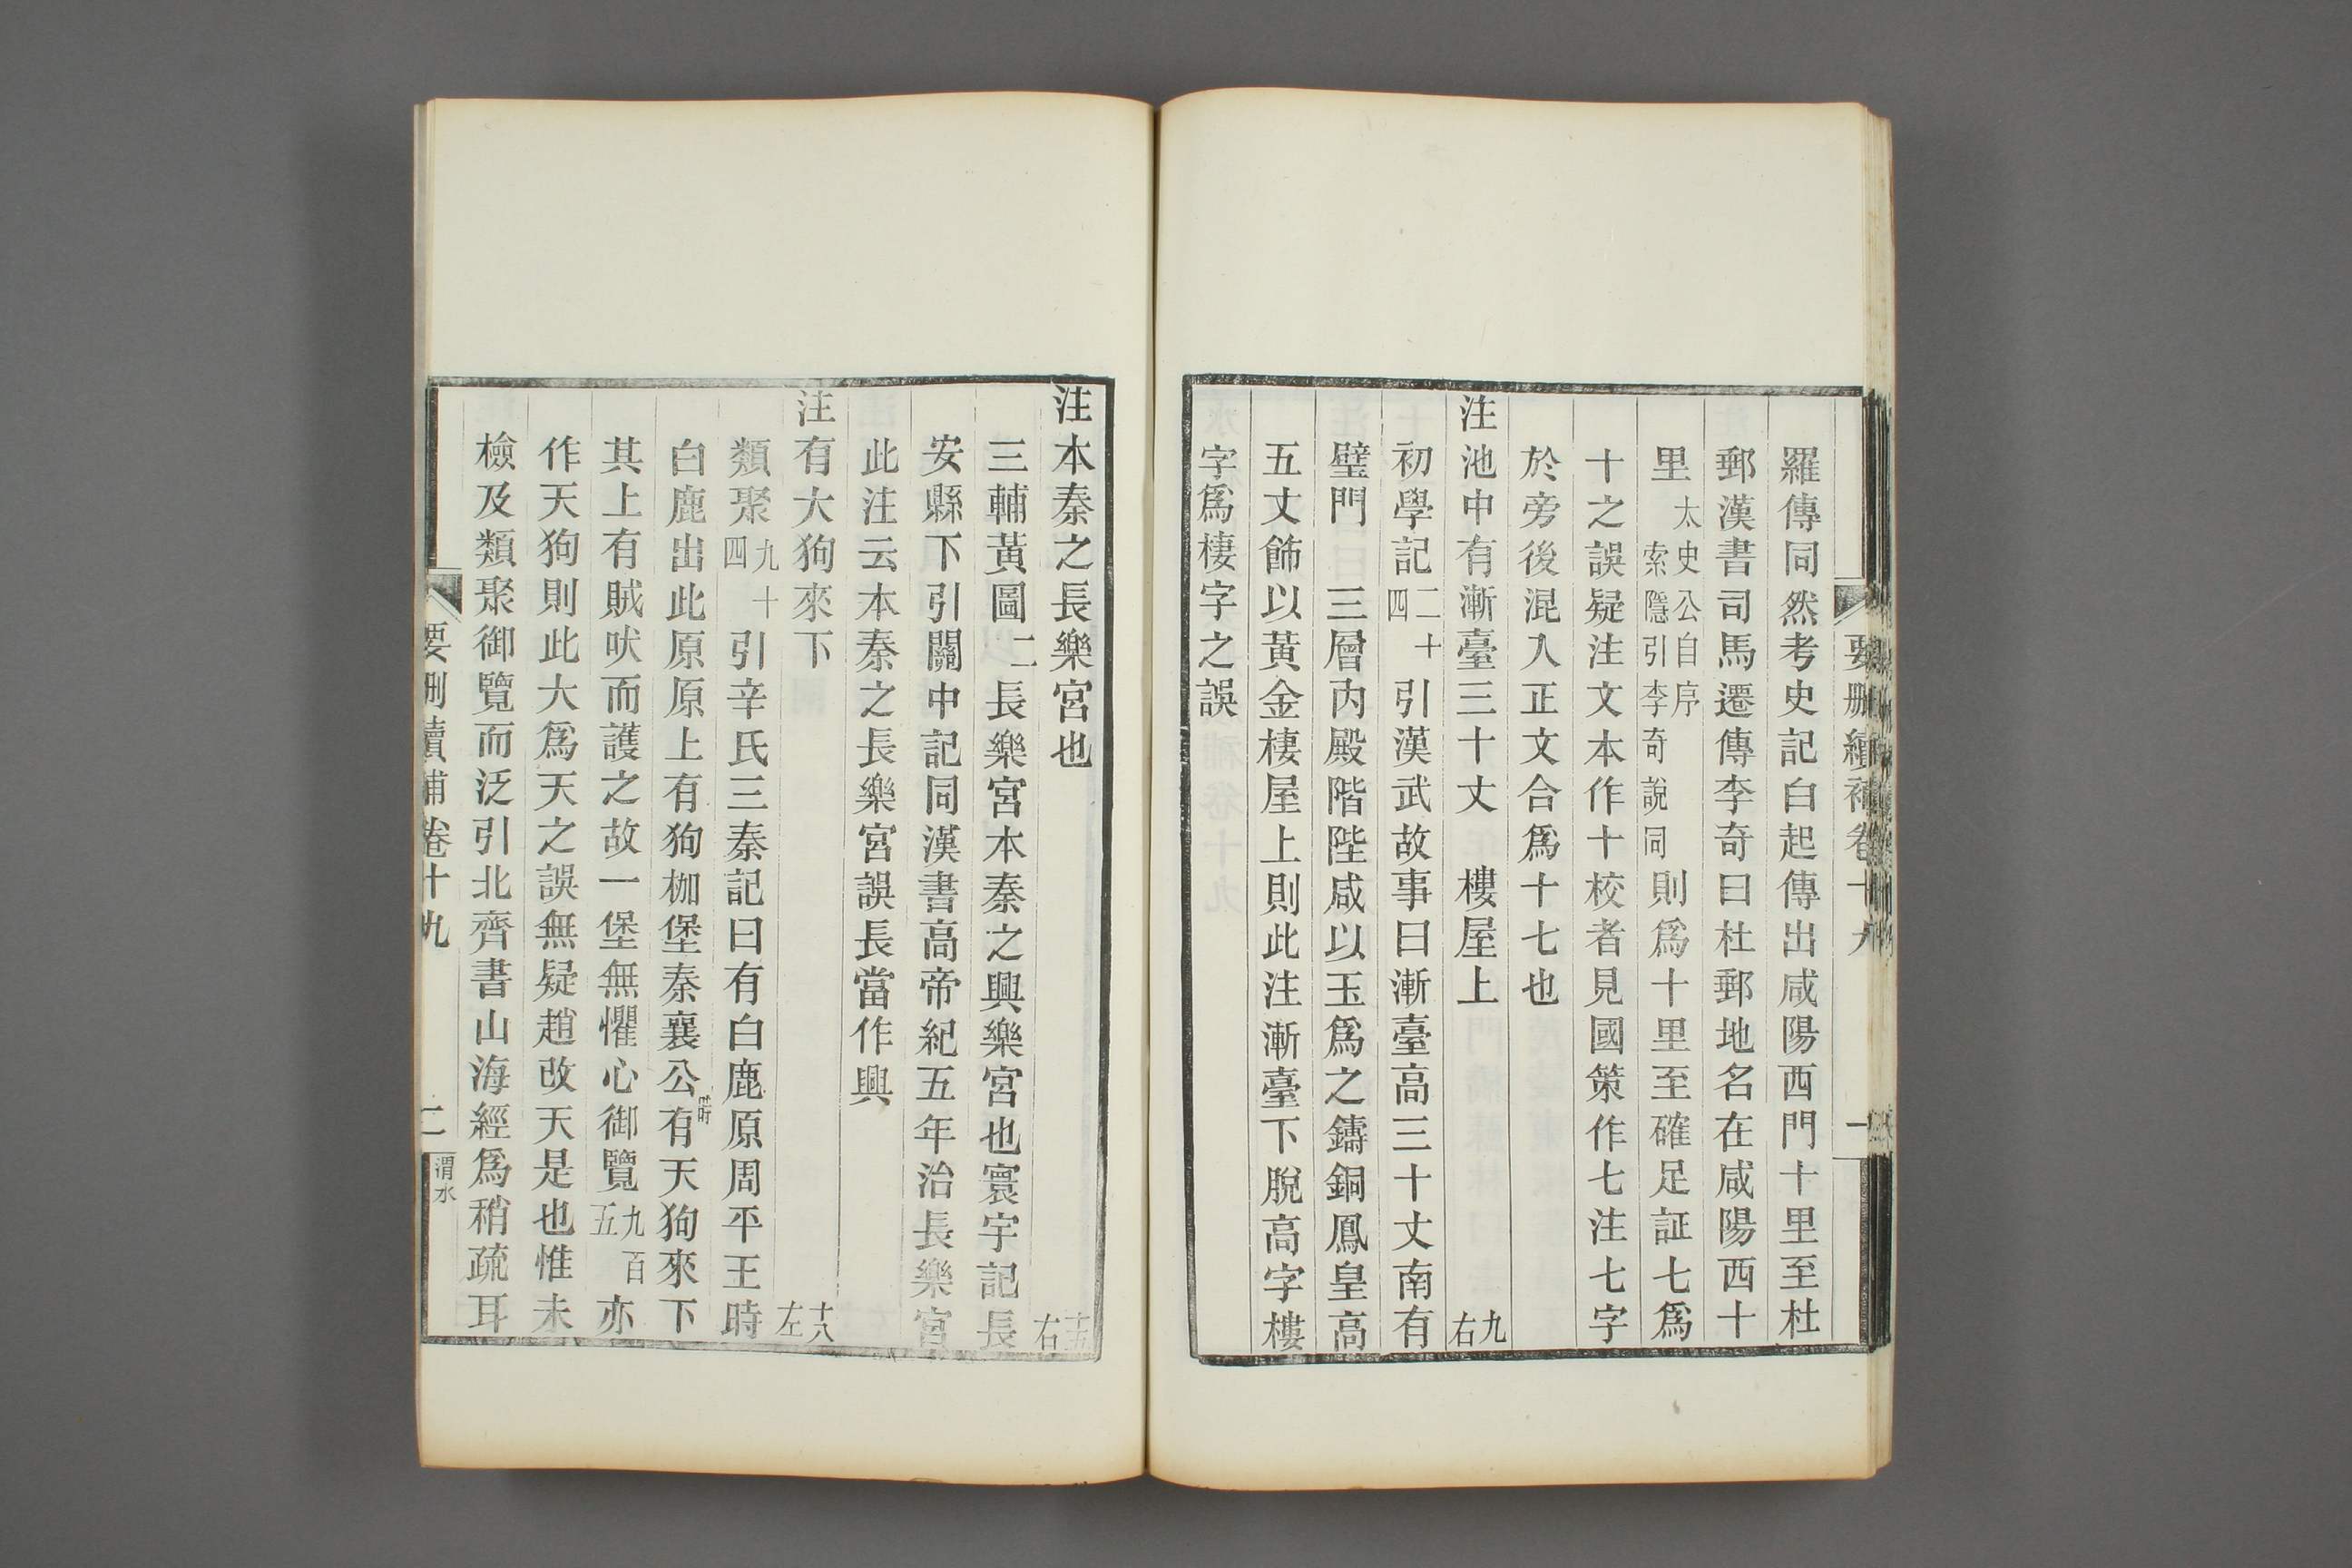 要刪續補卷十九
一
羅傳同然考史記白起傳出咸陽西門十里至杜
郵漢書司馬遷傳李奇曰杜郵地名在咸陽西十
里太史公自序索隱引李奇說同則爲十里至確足証七爲
十之誤疑注文本作十校者見國策作七注七字
於旁後混入正文合爲十七也
注池中有漸臺三十丈 樓屋上 九右
初學記二十四引漢武故事曰漸臺高三十丈南有
璧門 三層內殿階陛咸以玉爲之鑄銅鳳皇高
五丈飾以黃金棲屋上則此注漸臺下脫高字樓
字爲棲字之誤
注本秦之長樂宮也 十五右
三輔黃圖二長樂宮本秦之興樂宮也寰宇記長
安縣下引關中記同漢書高帝紀五年治長樂宮
此注云本秦之長樂宮誤長當作興
注有大狗來下 十八左
類聚九十四引辛氏三秦記曰有白鹿原周平王時
白鹿出此原原上有狗枷堡秦襄公時有天狗來下
其上有賊吠而護之故一堡無懼心御覽九百五亦
作天狗則此大爲天之誤無疑趙改天是也惟未
檢及類聚御覽而泛引北齊書山海經爲稍疏耳
要刪續補卷十九
二
渭水